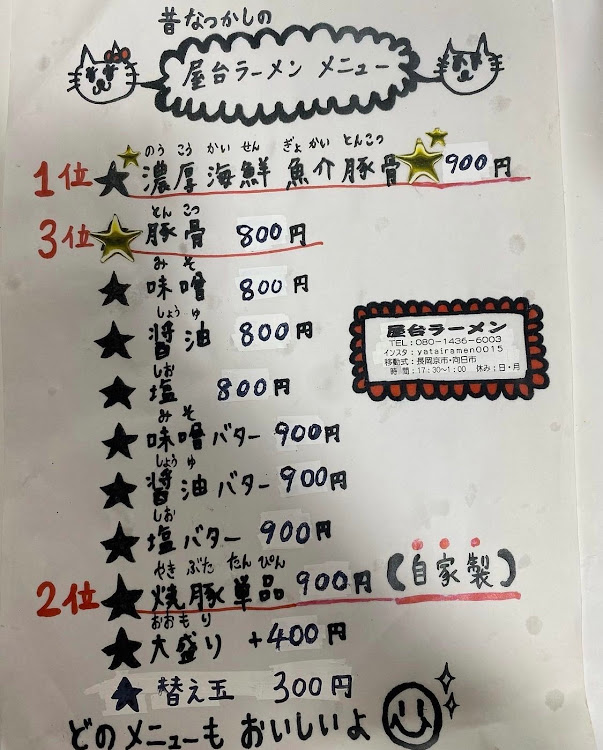 昔なつかしの
屋台ラーメン メニュー
のう こう かい せん ぎょ かい とんこつ
1位 ★ 濃厚 海鮮 魚介 豚骨 900円
とん こつ
3位 豚骨 800円
み そ
★ 味噌 800円
しょう ゆ
★ 醤油 800円
しお
★ 塩 800円
み そ
★ 味噌バター 900円
しょう ゆ
★ 醤油バター 900円
しお
★ 塩バター 900円
やき ぶた たん ぴん
2位 ★ 焼豚単品 900円 (自家製)
おお も り
★ 大盛り +400円
★ 替え玉 300円
どのメニューも おいしいよ
屋台ラーメン
TEL:080-1436-6003
インスタ:yatairamen0015
移動式:長岡京市・向日市
時間:17:30~1:00 休み:日・月